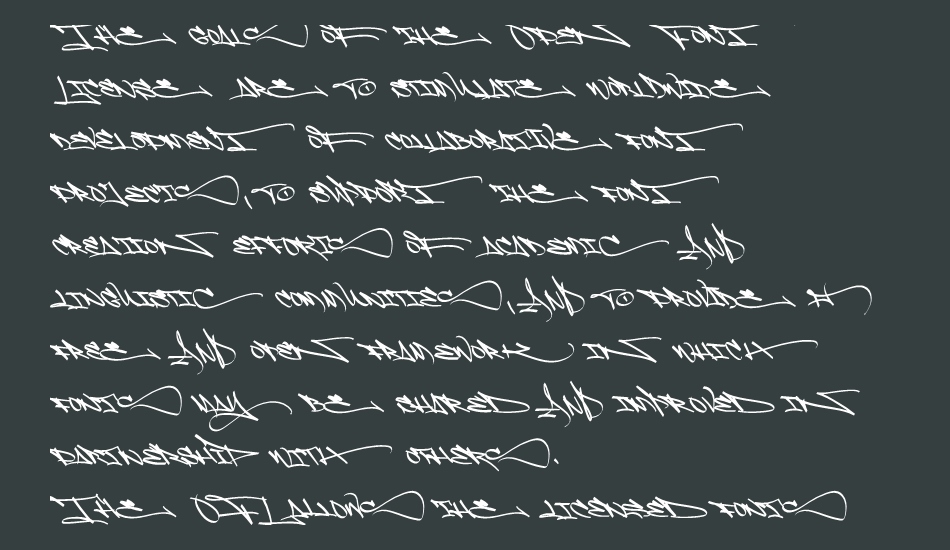 The goals of the Open Font
License are to stimulate worldwide
development of collaborative font
projects, to support the font
creation efforts of academic and
linguistic communities, and to provide a
free and open framework in which
fonts may be shared and improved in
partnership with others.
The OFL allows the licensed fonts